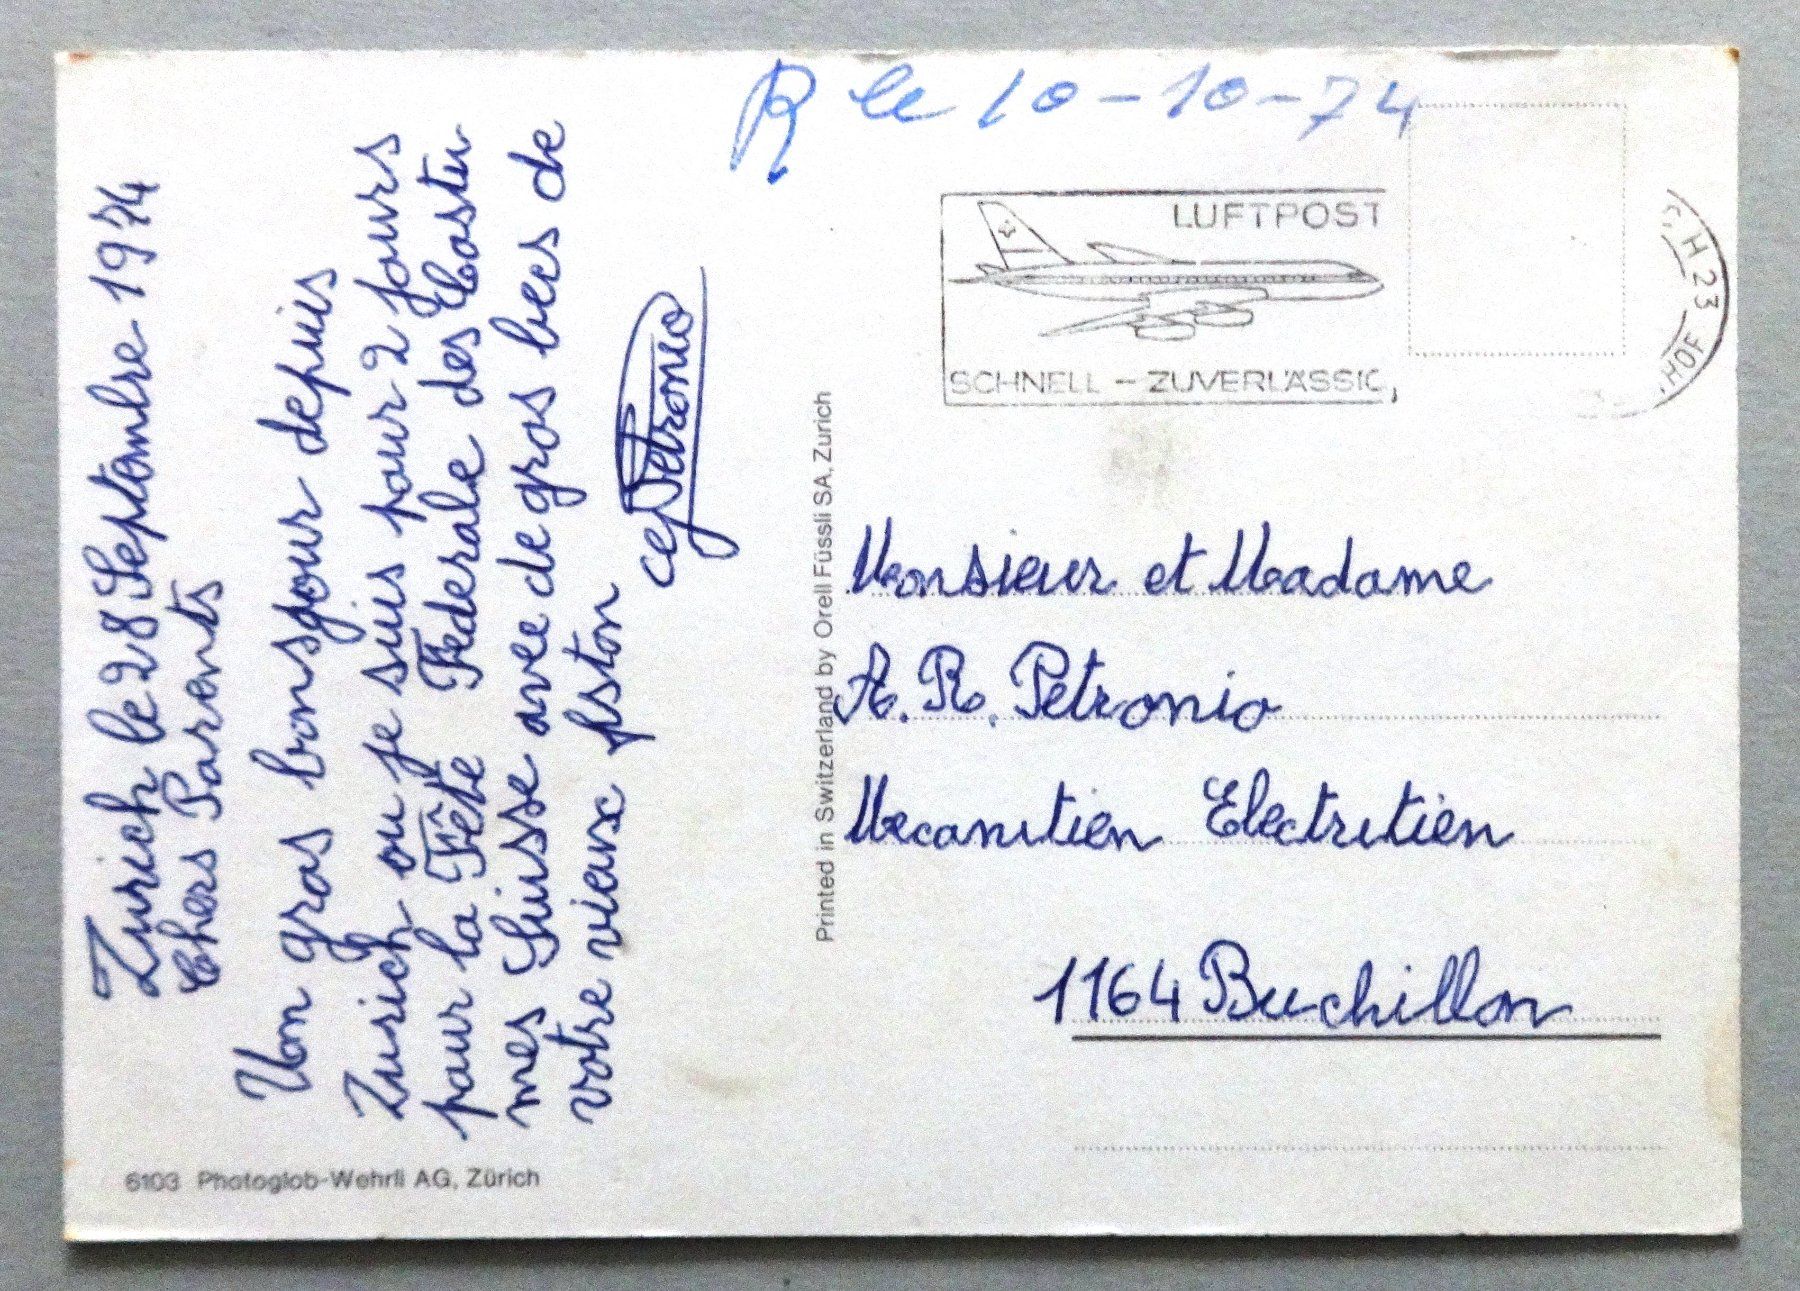 Zurich le 28 Septembre 1974
Chers Parents
Un gros bonsjour depuis
Zurich ou je suis pour 2 jours
pour la Fête Féderale des Costu
mes Suisse avec de gros becs de
votre vieux fiston
Petronio
6103 Photoglob-Wehrli AG, Zürich
Printed in Switzerland by Orell Füssli SA, Zurich
R le 10-10-74
LUFTPOST
SCHNELL - ZUVERLÄSSIG
H 23
HOF
Monsieur et Madame
A. R. Petronio
Mecanitien Electritien
1164 Buchillon